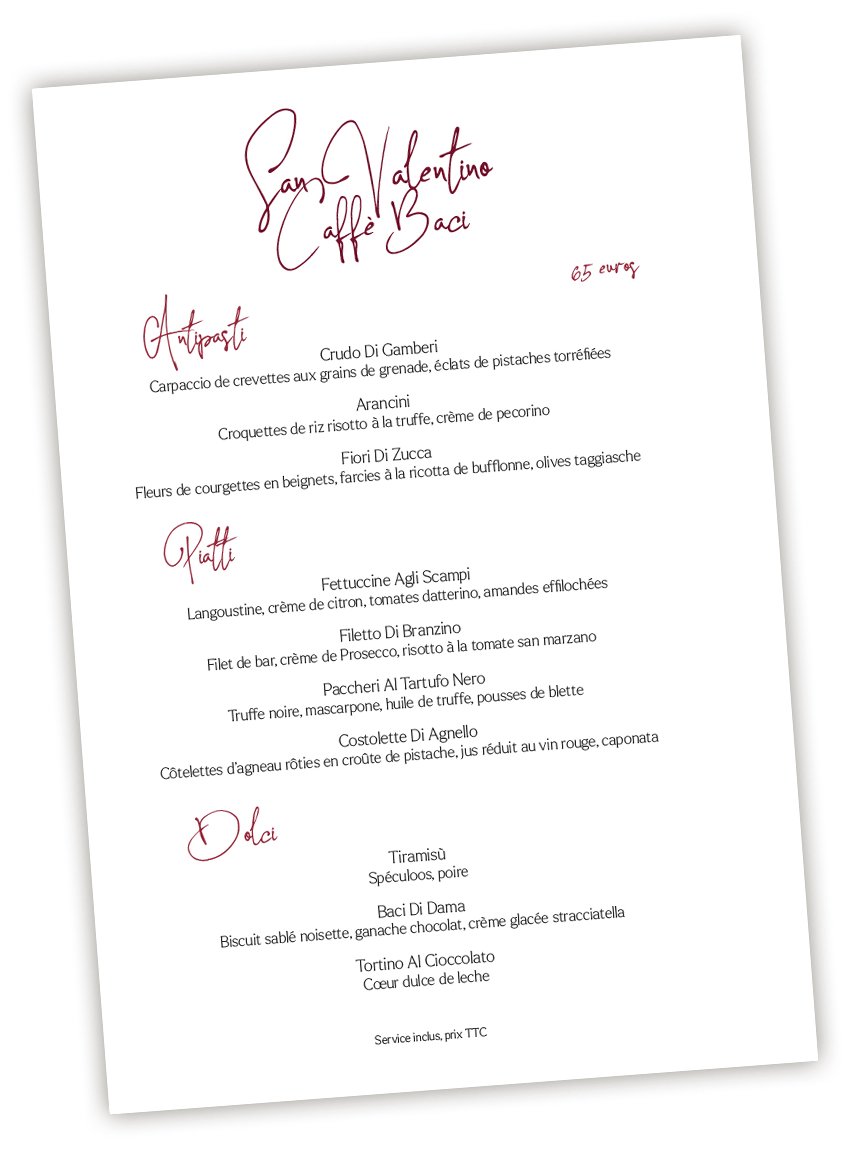 San Valentino
Caffè Baci
65 euros
Antipasti
Crudo Di Gamberi
Carpaccio de crevettes aux grains de grenade, éclats de pistaches torréfiées
Arancini
Croquettes de riz risotto à la truffe, crème de pecorino
Fiori Di Zucca
Fleurs de courgettes en beignets, farcies à la ricotta de bufflonne, olives taggiasche
Piatti
Fettuccine Agli Scampi
Langoustine, crème de citron, tomates datterino, amandes effilochées
Filetto Di Branzino
Filet de bar, crème de Prosecco, risotto à la tomate san marzano
Paccheri Al Tartufo Nero
Truffe noire, mascarpone, huile de truffe, pousses de blette
Costolette Di Agnello
Côtelettes d’agneau rôties en croûte de pistache, jus réduit au vin rouge, caponata
Dolci
Tiramisù
Spéculoos, poire
Baci Di Dama
Biscuit sablé noisette, ganache chocolat, crème glacée stracciatella
Tortino Al Cioccolato
Cœur dulce de leche
Service inclus, prix TTC